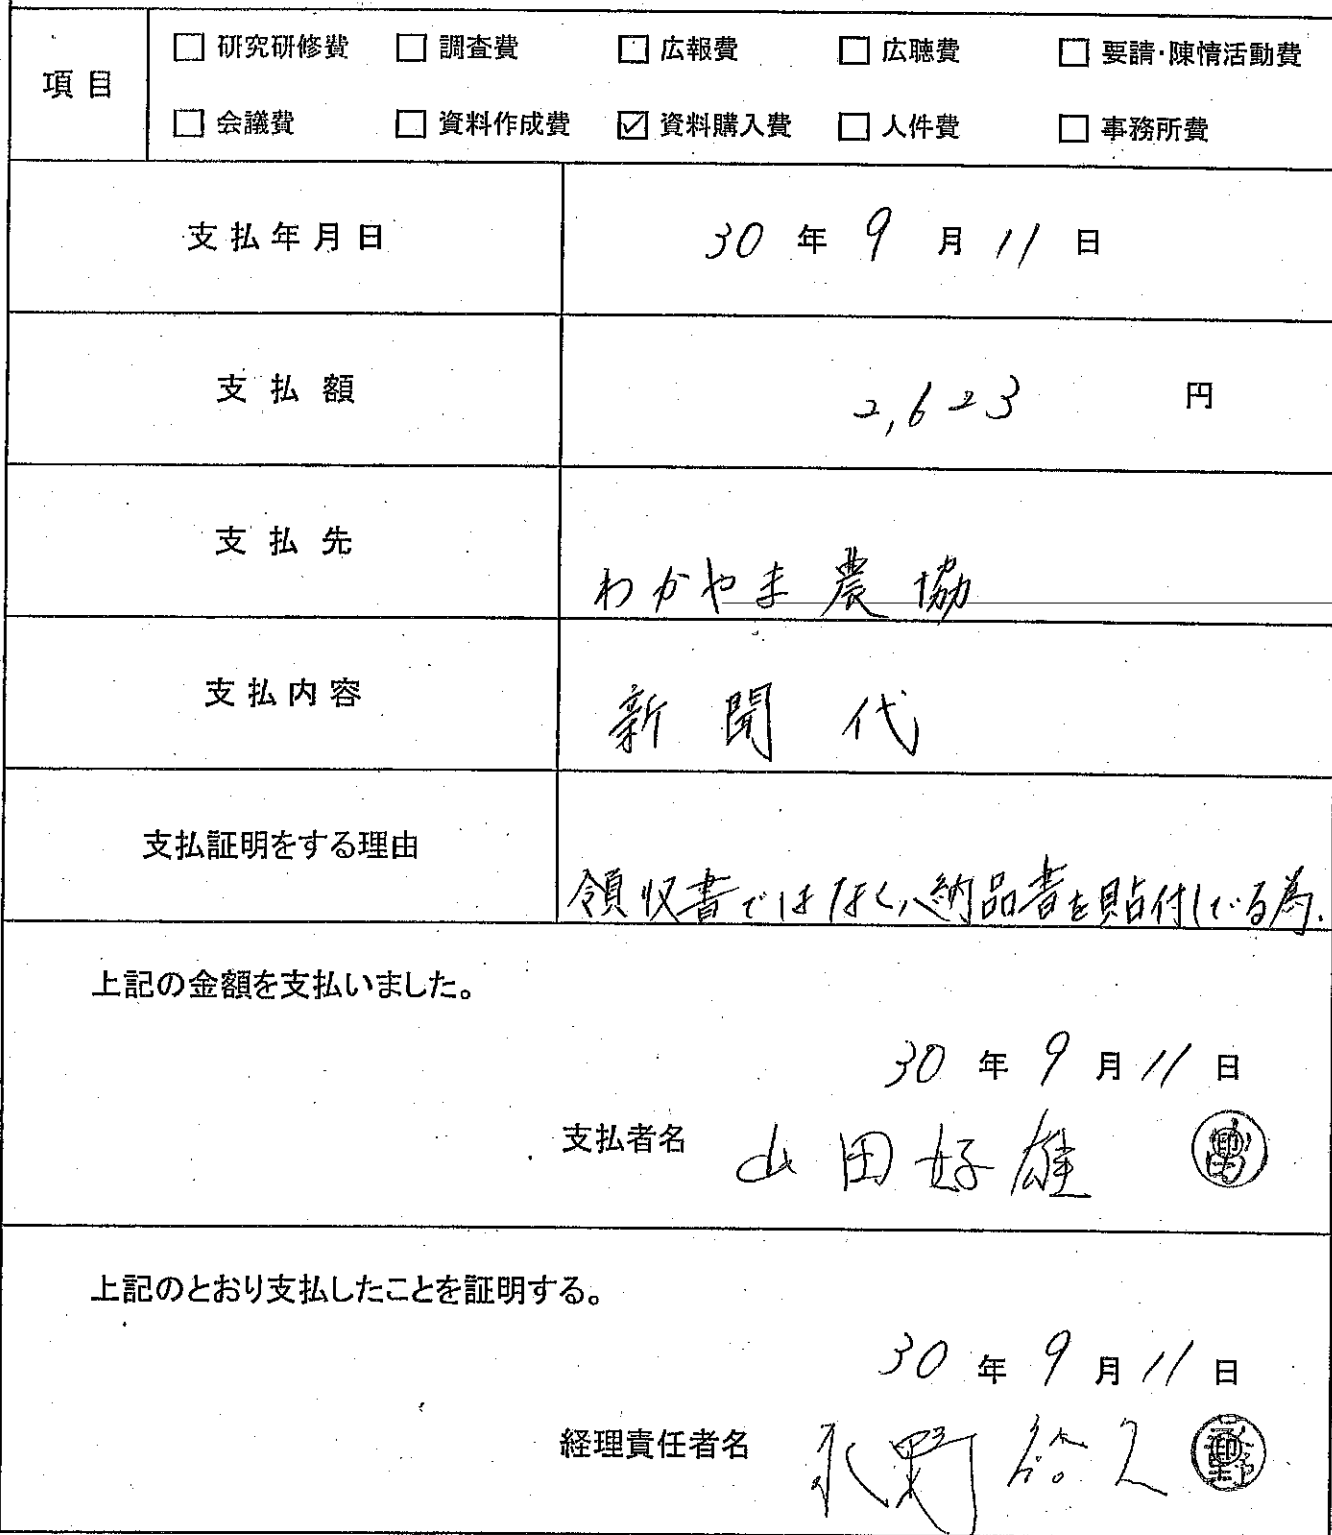 項目
□ 研究研修費 □ 調査費 □ 広報費 □ 広聴費 □ 要請・陳情活動費
□ 会議費 □ 資料作成費 ☑ 資料購入費 □ 人件費 □ 事務所費
支払年月日 30年9月11日
支払額 2,623円
支払先 わかやま農協
支払内容 新聞代
支払証明をする理由 領収書ではなく、納品書を貼付してる為.
上記の金額を支払いました。
30年9月11日
支払者名 山田好雄
上記のとおり支払したことを証明する。
30年9月11日
経理責任者名 永野裕久